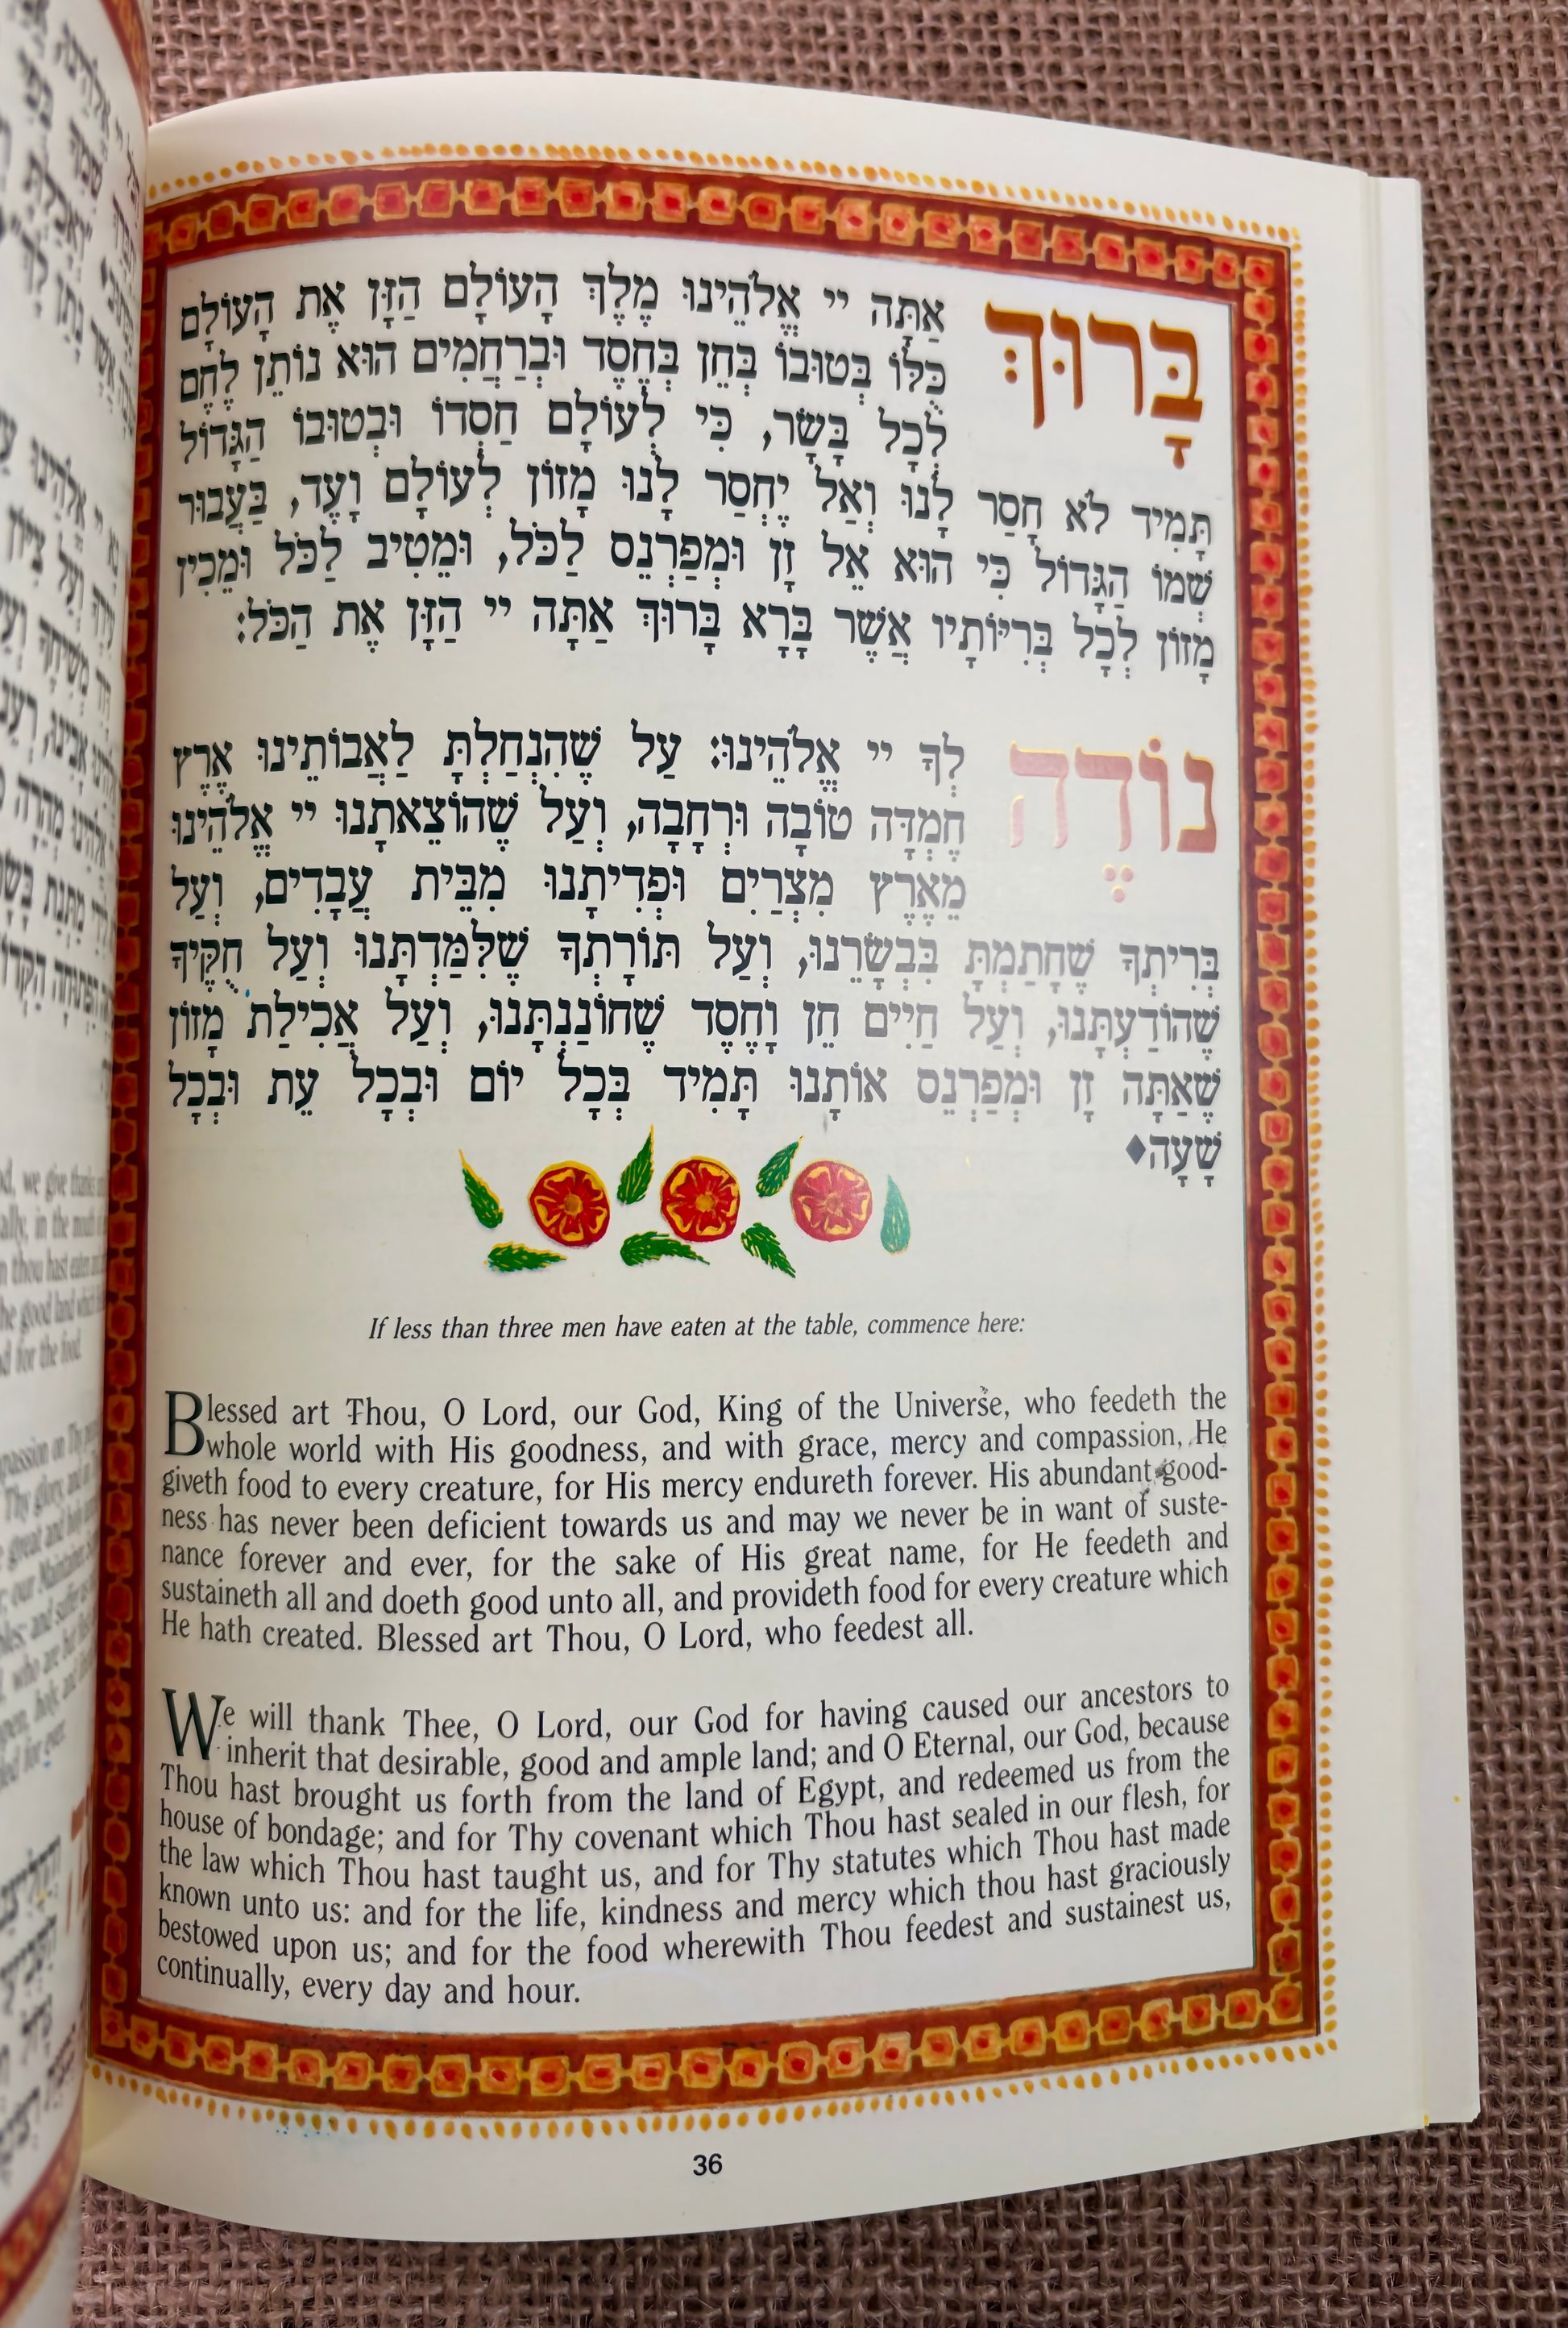 בָּרוּךְ אַתָּה יי אֱלֹהֵינוּ מֶלֶךְ הָעוֹלָם הַזָּן אֶת הָעוֹלָם
כֻּלּוֹ בְּטוּבוֹ בְּחֵן בְּחֶסֶד וּבְרַחֲמִים הוּא נוֹתֵן לֶחֶם
לְכָל בָּשָׂר, כִּי לְעוֹלָם חַסְדוֹ וּבְטוּבוֹ הַגָּדוֹל
תָּמִיד לֹא חָסַר לָנוּ וְאַל יֶחְסַר לָנוּ מָזוֹן לְעוֹלָם וָעֶד, בַּעֲבוּר
שְׁמוֹ הַגָּדוֹל כִּי הוּא אֵל זָן וּמְפַרְנֵס לַכֹּל, וּמֵטִיב לַכֹּל וּמֵכִין
מָזוֹן לְכָל בְּרִיּוֹתָיו אֲשֶׁר בָּרָא בָּרוּךְ אַתָּה יי הַזָּן אֶת הַכֹּל:
נוֹדֶה לְּךָ יי אֱלֹהֵינוּ: עַל שֶׁהִנְחַלְתָּ לַאֲבוֹתֵינוּ אֶרֶץ
חֶמְדָּה טוֹבָה וּרְחָבָה, וְעַל שֶׁהוֹצֵאתָנוּ יי אֱלֹהֵינוּ
מֵאֶרֶץ מִצְרַיִם וּפְדִיתָנוּ מִבֵּית עֲבָדִים, וְעַל
בְּרִיתְךָ שֶׁחָתַמְתָּ בִּבְשָׂרֵנוּ, וְעַל תּוֹרָתְךָ שֶׁלִּמַּדְתָּנוּ וְעַל חֻקֶּיךָ
שֶׁהוֹדַעְתָּנוּ, וְעַל חַיִּים חֵן וָחֶסֶד שֶׁחוֹנַנְתָּנוּ, וְעַל אֲכִילַת מָזוֹן
שֶׁאַתָּה זָן וּמְפַרְנֵס אוֹתָנוּ תָּמִיד בְּכָל יוֹם וּבְכָל עֵת וּבְכָל
שָׁעָה♦
If less than three men have eaten at the table, commence here:
Blessed art Thou, O Lord, our God, King of the Universe, who feedeth the
whole world with His goodness, and with grace, mercy and compassion, He
giveth food to every creature, for His mercy endureth forever. His abundant good-
ness has never been deficient towards us and may we never be in want of suste-
nance forever and ever, for the sake of His great name, for He feedeth and
sustaineth all and doeth good unto all, and provideth food for every creature which
He hath created. Blessed art Thou, O Lord, who feedest all.
We will thank Thee, O Lord, our God for having caused our ancestors to
inherit that desirable, good and ample land; and O Eternal, our God, because
Thou hast brought us forth from the land of Egypt, and redeemed us from the
house of bondage; and for Thy covenant which Thou hast sealed in our flesh, for
the law which Thou hast taught us, and for Thy statutes which Thou hast made
known unto us: and for the life, kindness and mercy which thou hast graciously
bestowed upon us; and for the food wherewith Thou feedest and sustainest us,
continually, every day and hour.
36